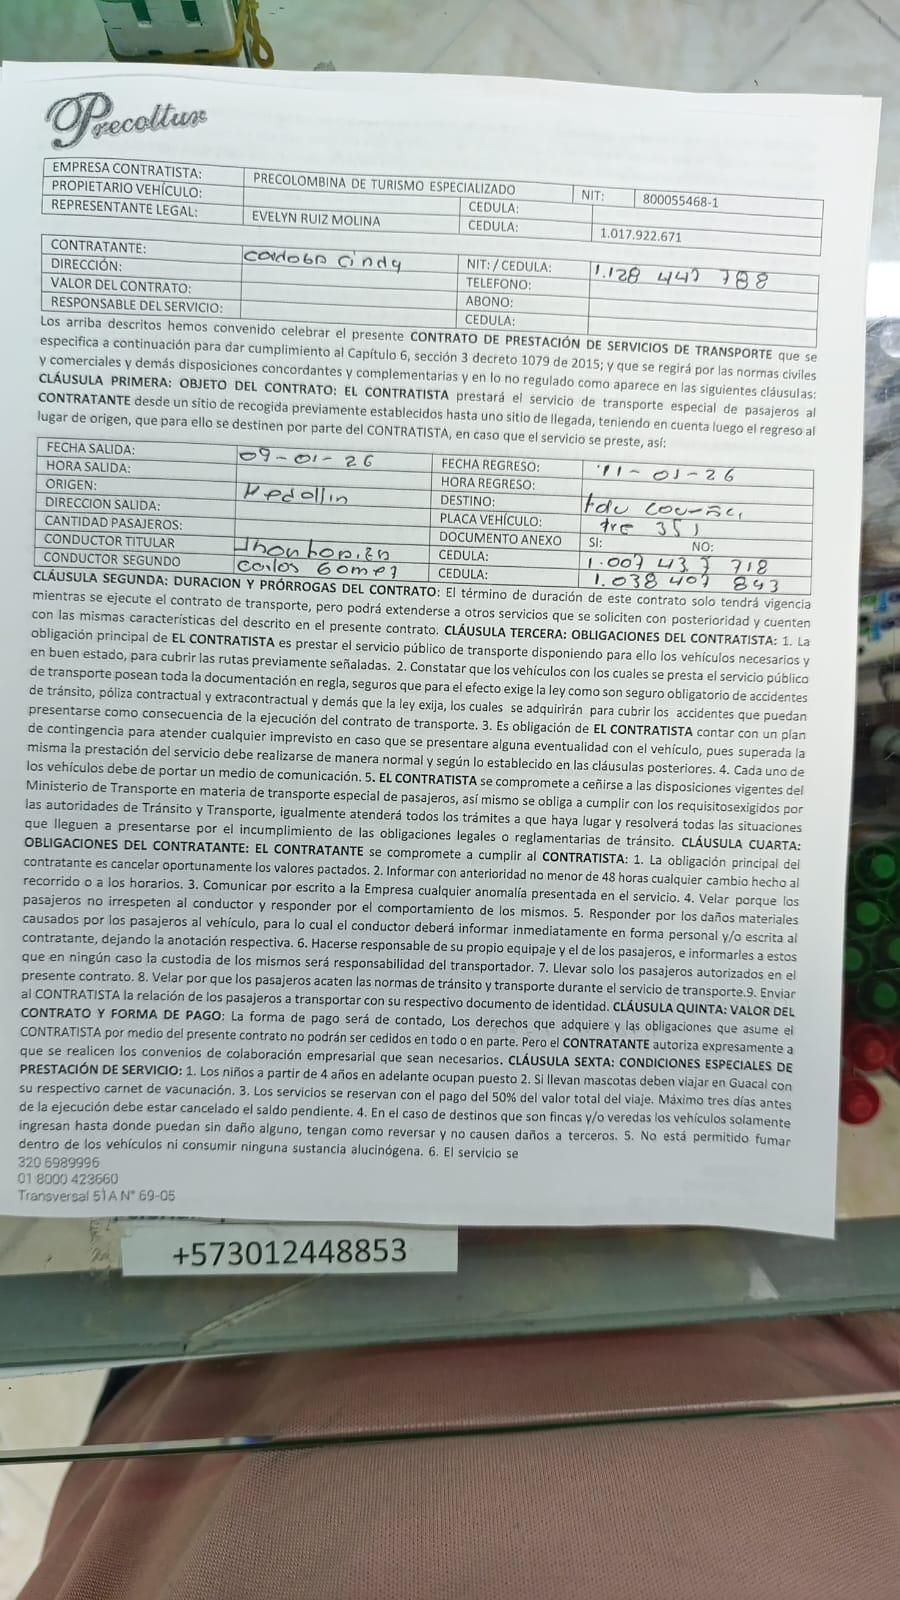 Precoltur
EMPRESA CONTRATISTA: PRECOLOMBINA DE TURISMO ESPECIALIZADO NIT: 800055468-1
PROPIETARIO VEHÍCULO: CEDULA:
REPRESENTANTE LEGAL: EVELYN RUIZ MOLINA CEDULA: 1.017.922.671
CONTRATANTE: Cordoba Cindy NIT: / CEDULA: 1.128 447 788
DIRECCIÓN: TELEFONO:
VALOR DEL CONTRATO: ABONO:
RESPONSABLE DEL SERVICIO: CEDULA:
Los arriba descritos hemos convenido celebrar el presente CONTRATO DE PRESTACIÓN DE SERVICIOS DE TRANSPORTE que se
especifica a continuación para dar cumplimiento al Capítulo 6, sección 3 decreto 1079 de 2015; y que se regirá por las normas civiles
y comerciales y demás disposiciones concordantes y complementarias y en lo no regulado como aparece en las siguientes cláusulas:
CLÁUSULA PRIMERA: OBJETO DEL CONTRATO: EL CONTRATISTA prestará el servicio de transporte especial de pasajeros al
CONTRATANTE desde un sitio de recogida previamente establecidos hasta uno sitio de llegada, teniendo en cuenta luego el regreso al
lugar de origen, que para ello se destinen por parte del CONTRATISTA, en caso que el servicio se preste, así:
FECHA SALIDA: 09-01-26 FECHA REGRESO: 11-01-26
HORA SALIDA: HORA REGRESO:
ORIGEN: Medellin DESTINO:
DIRECCION SALIDA: PLACA VEHÍCULO: 351
CANTIDAD PASAJEROS: DOCUMENTO ANEXO SI: NO:
CONDUCTOR TITULAR CEDULA: 1.007 437 718
CONDUCTOR SEGUNDO Carlos Gomez CEDULA: 1.038 407 843
CLÁUSULA SEGUNDA: DURACION Y PRÓRROGAS DEL CONTRATO: El término de duración de este contrato solo tendrá vigencia
mientras se ejecute el contrato de transporte, pero podrá extenderse a otros servicios que se soliciten con posterioridad y cuenten
con las mismas características del descrito en el presente contrato. CLÁUSULA TERCERA: OBLIGACIONES DEL CONTRATISTA: 1. La
obligación principal de EL CONTRATISTA es prestar el servicio público de transporte disponiendo para ello los vehículos necesarios y
en buen estado, para cubrir las rutas previamente señaladas. 2. Constatar que los vehículos con los cuales se presta el servicio público
de transporte posean toda la documentación en regla, seguros que para el efecto exige la ley como son seguro obligatorio de accidentes
de tránsito, póliza contractual y extracontractual y demás que la ley exija, los cuales se adquirirán para cubrir los accidentes que puedan
presentarse como consecuencia de la ejecución del contrato de transporte. 3. Es obligación de EL CONTRATISTA contar con un plan
de contingencia para atender cualquier imprevisto en caso que se presentare alguna eventualidad con el vehículo, pues superada la
misma la prestación del servicio debe realizarse de manera normal y según lo establecido en las cláusulas posteriores. 4. Cada uno de
los vehículos debe de portar un medio de comunicación. 5. EL CONTRATISTA se compromete a ceñirse a las disposiciones vigentes del
Ministerio de Transporte en materia de transporte especial de pasajeros, así mismo se obliga a cumplir con los requisitosexigidos por
las autoridades de Tránsito y Transporte, igualmente atenderá todos los trámites a que haya lugar y resolverá todas las situaciones
que lleguen a presentarse por el incumplimiento de las obligaciones legales o reglamentarias de tránsito. CLÁUSULA CUARTA:
OBLIGACIONES DEL CONTRATANTE: EL CONTRATANTE se compromete a cumplir al CONTRATISTA: 1. La obligación principal del
contratante es cancelar oportunamente los valores pactados. 2. Informar con anterioridad no menor de 48 horas cualquier cambio hecho al
recorrido o a los horarios. 3. Comunicar por escrito a la Empresa cualquier anomalía presentada en el servicio. 4. Velar porque los
pasajeros no irrespeten al conductor y responder por el comportamiento de los mismos. 5. Responder por los daños materiales
causados por los pasajeros al vehículo, para lo cual el conductor deberá informar inmediatamente en forma personal y/o escrita al
contratante, dejando la anotación respectiva. 6. Hacerse responsable de su propio equipaje y el de los pasajeros, e informarles a estos
que en ningún caso la custodia de los mismos será responsabilidad del transportador. 7. Llevar solo los pasajeros autorizados en el
presente contrato. 8. Velar por que los pasajeros acaten las normas de tránsito y transporte durante el servicio de transporte.9. Enviar
al CONTRATISTA la relación de los pasajeros a transportar con su respectivo documento de identidad. CLÁUSULA QUINTA: VALOR DEL
CONTRATO Y FORMA DE PAGO: La forma de pago será de contado, Los derechos que adquiere y las obligaciones que asume el
CONTRATISTA por medio del presente contrato no podrán ser cedidos en todo o en parte. Pero el CONTRATANTE autoriza expresamente a
que se realicen los convenios de colaboración empresarial que sean necesarios. CLÁUSULA SEXTA: CONDICIONES ESPECIALES DE
PRESTACIÓN DE SERVICIO: 1. Los niños a partir de 4 años en adelante ocupan puesto 2. Si llevan mascotas deben viajar en Guacal con
su respectivo carnet de vacunación. 3. Los servicios se reservan con el pago del 50% del valor total del viaje. Máximo tres días antes
de la ejecución debe estar cancelado el saldo pendiente. 4. En el caso de destinos que son fincas y/o veredas los vehículos solamente
ingresan hasta donde puedan sin daño alguno, tengan como reversar y no causen daños a terceros. 5. No está permitido fumar
dentro de los vehículos ni consumir ninguna sustancia alucinógena. 6. El servicio se
320 6989996
01 8000 423660
Transversal 51A N° 69-05
+573012448853